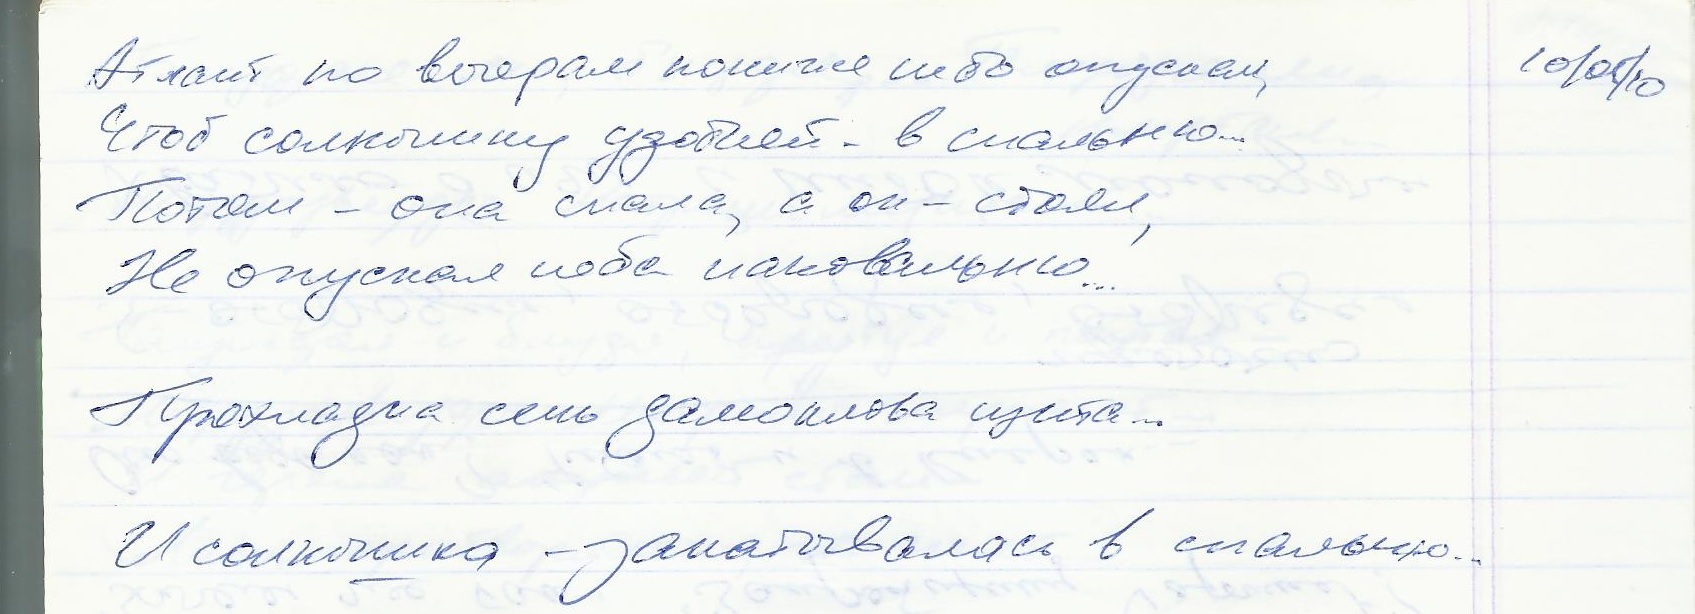 Атлант по вечерам пониже небо опускал, 10/05/10
Чтоб солнышку удобней - в спальню...
Потом - она спала, а он - стоял,
Не опуская неба наковальню...
Прохладна сень дамоклова щита...
И солнышко - закатывалась в спальню...